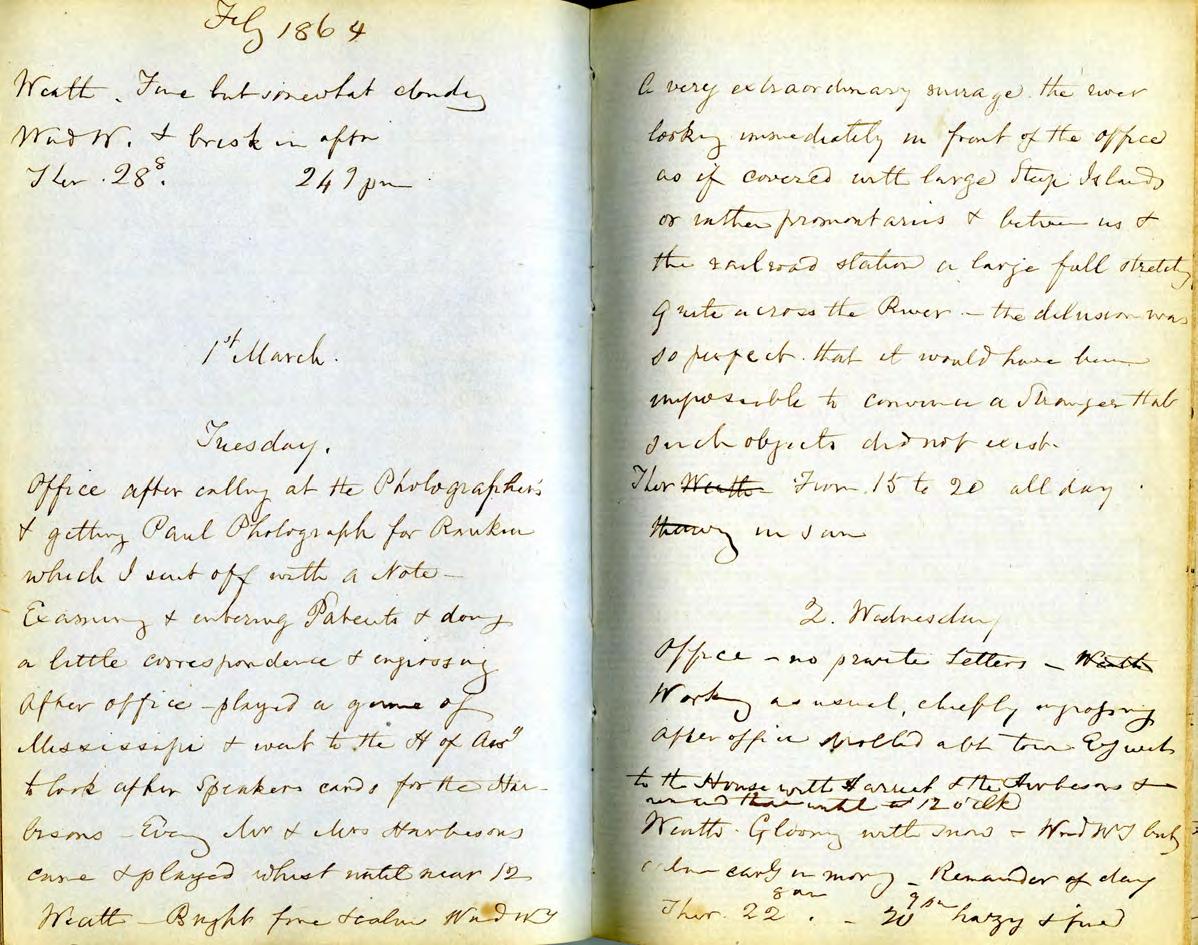 Feby 1864
Weath. Fine but somewhat cloudy
Wind W. & brisk in aftn
Ther. 28 8. 24 9 pm
1st March.
Tuesday.
Office after calling at the Photographer's
& getting Paul Photograph for Rankin
which I sent off with a Note -
Examing & entering Patents & doing
a little correspondence & engrossing
After office - played a game of
Mississipi & went to the H of Assy
to look after Speakers cards for the Har-
besons - Eveng Mr & Mrs Harbesons
came & played whist until near 12
Weath - Bright fine & calm Wind
A very extraordinary mirage. the river
looking immediately in front of the office
as if covered with large Steep Islands
or rather promontaries & between us &
the railroad station a large fall stretchg
quite across the River - the delusion was
so perfect that it would have been
impossible to convince a Stranger that
such objects did not exist.
Ther Weath From 15 to 20 all day
thawg in sun
2. Wednesday
Office - no private Letters - Weath
Working as usual, chiefly engrossing
After office strolled abt town Evg went
to the House with Harriet & the Harbesons &
remaind there until 12 oclk
Weath. Gloomy with snow - Wind but
calm early in morng - Remainder of day
Ther. 22 8 am - 20 9 pm hazy & fine